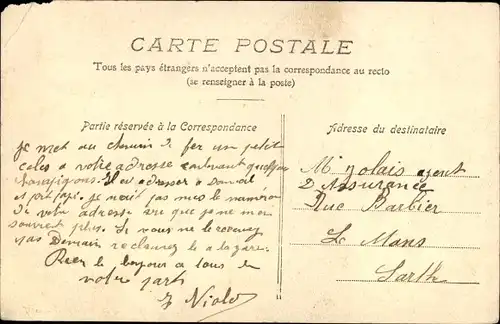 CARTE POSTALE
Tous les pays étrangers n'acceptent pas la correspondance au recto
(se renseigner à la poste)
Partie réservée à la Correspondance
je met au chemin de fer un petit
colis a votre adresse contenant quelques
champignons. Il est adresser a Domicile
et port payé. je n'ait pas mes le numero
de votre adresse vue que je ne m'en
souvient plus. Si vous ne le recevez
pas Demain reclamez le a la gare.
Rien le bonjour a tous de
votre part
Niolo
Adresse du destinataire
M agent
D'Assurance
Rue Barbier
Le Mans
Sarthe